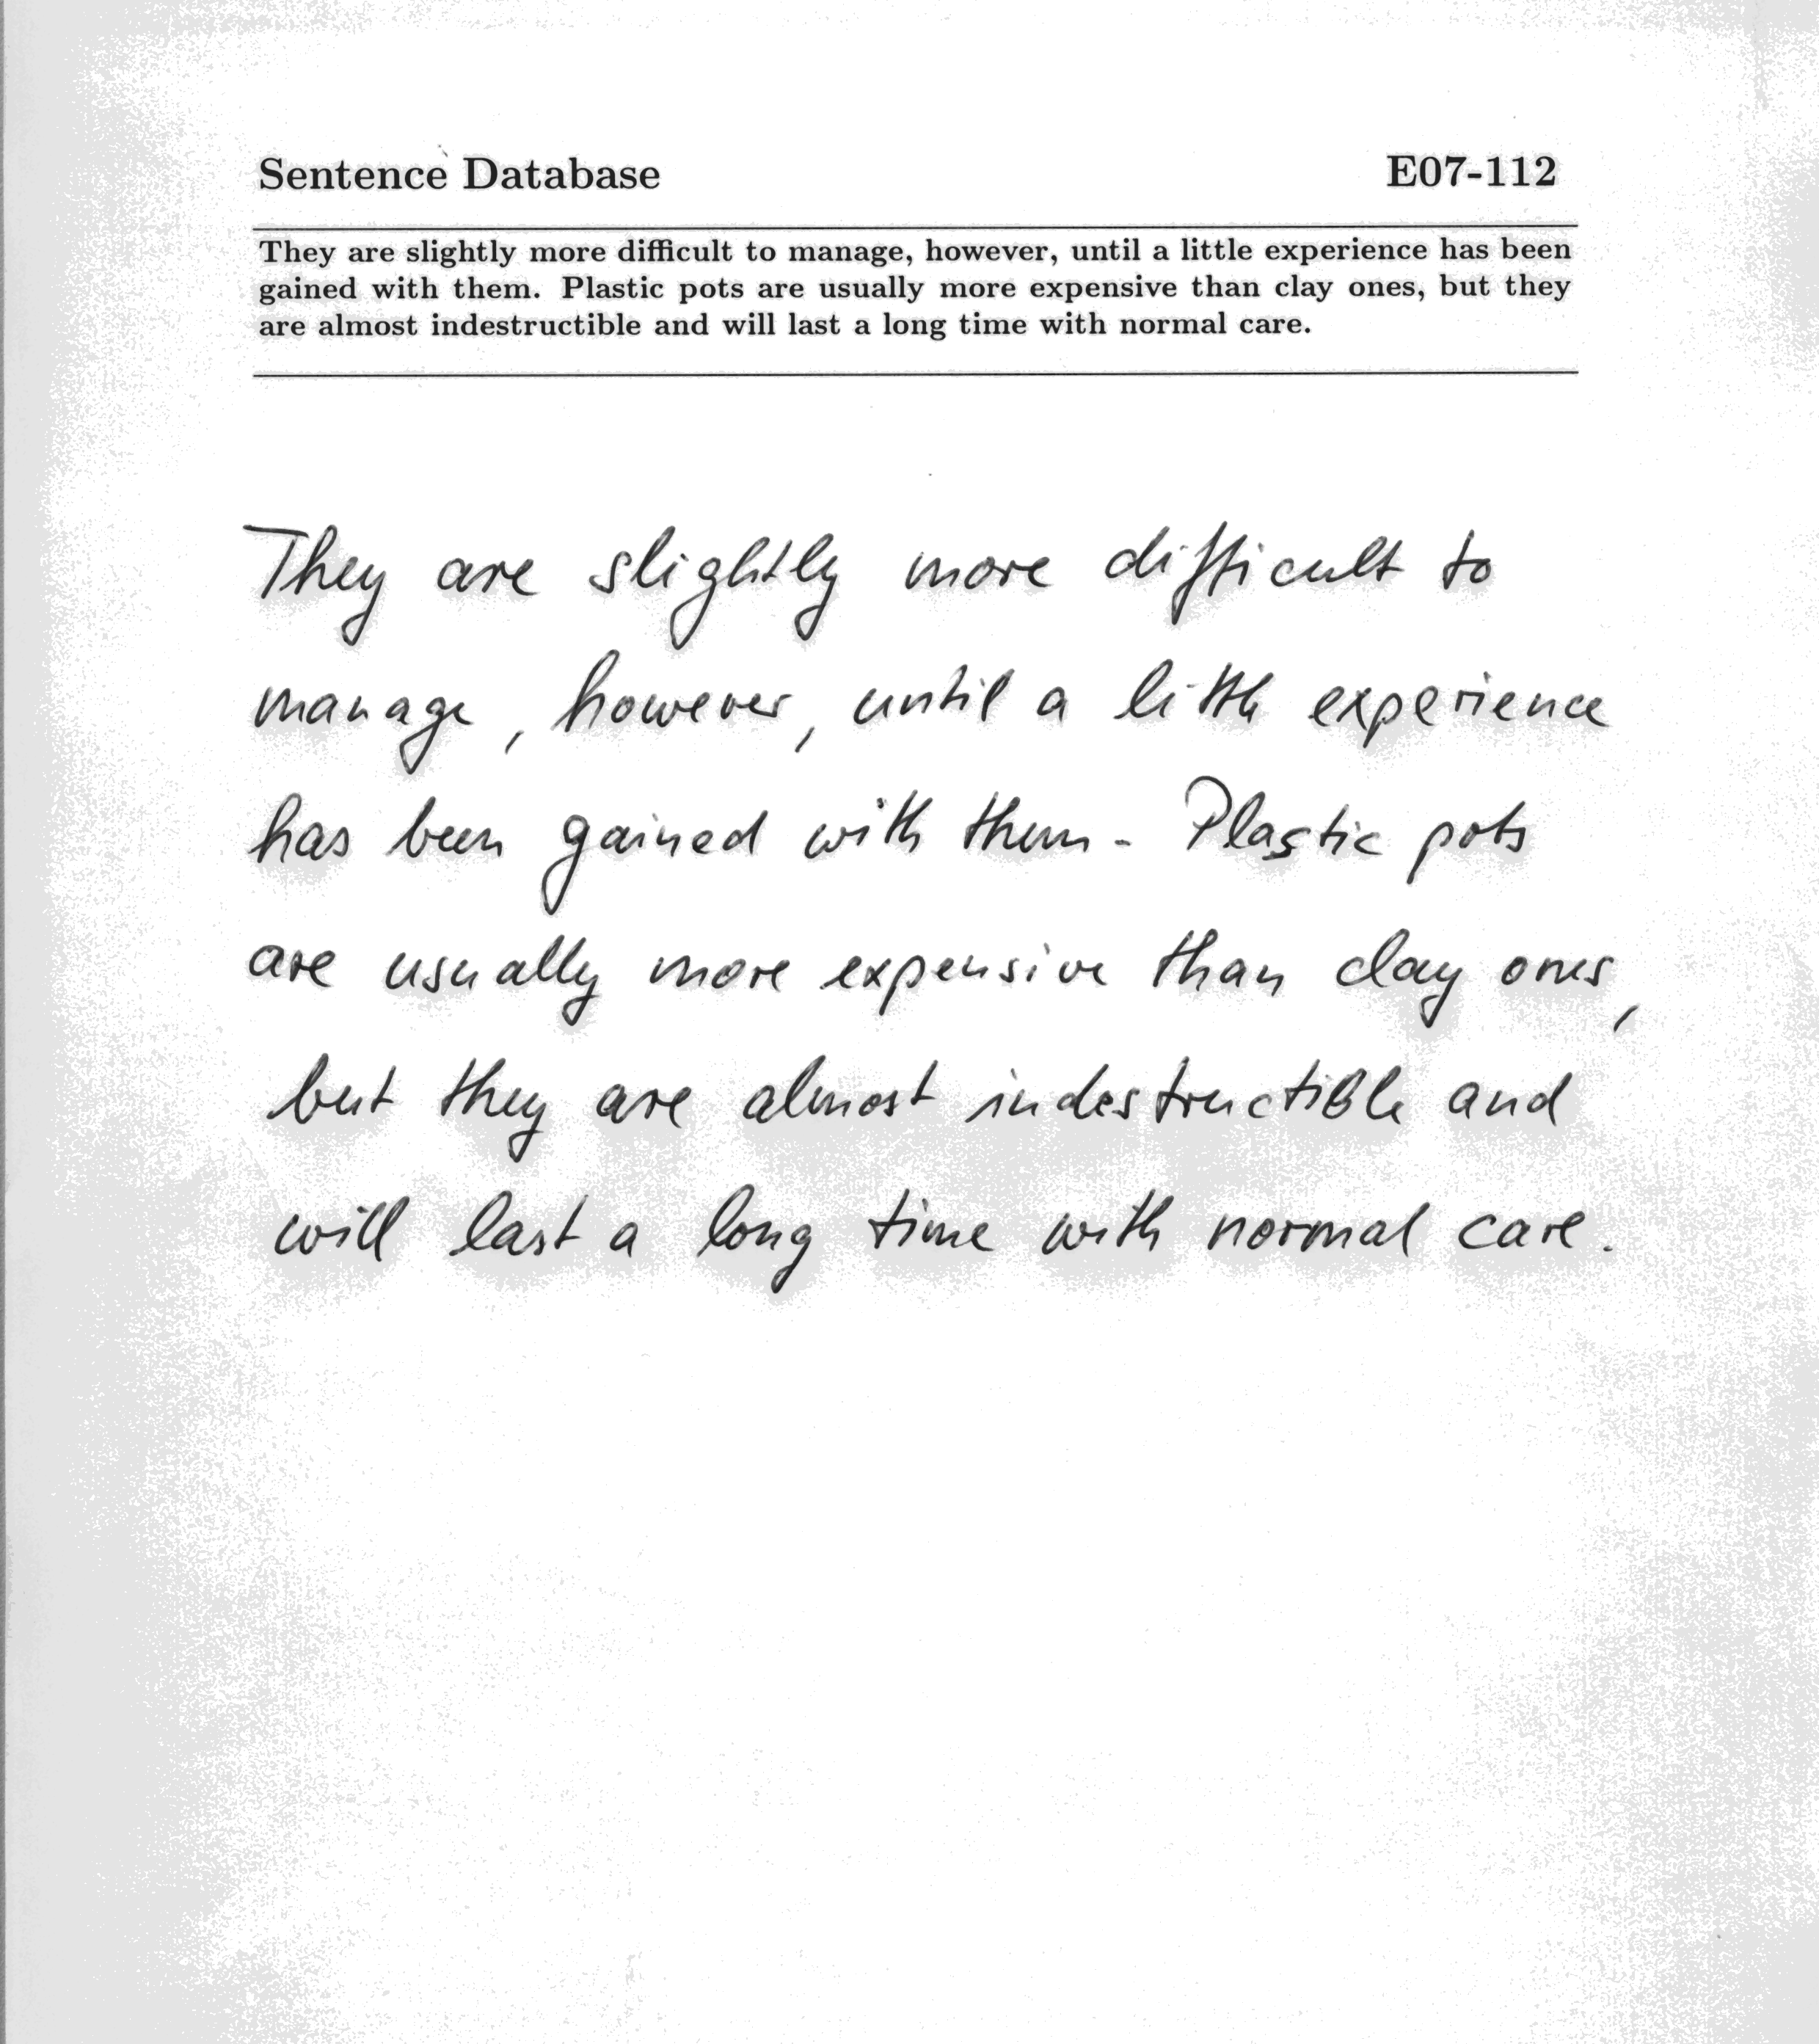 Sentence Database E07-112
They are slightly more difficult to manage, however, until a little experience has been
gained with them. Plastic pots are usually more expensive than clay ones, but they
are almost indestructible and will last a long time with normal care.
They are slightly more difficult to
manage, however, until a little experience
has been gained with them. Plastic pots
are usually more expensive than clay ones,
but they are almost indestructible and
will last a long time with normal care.